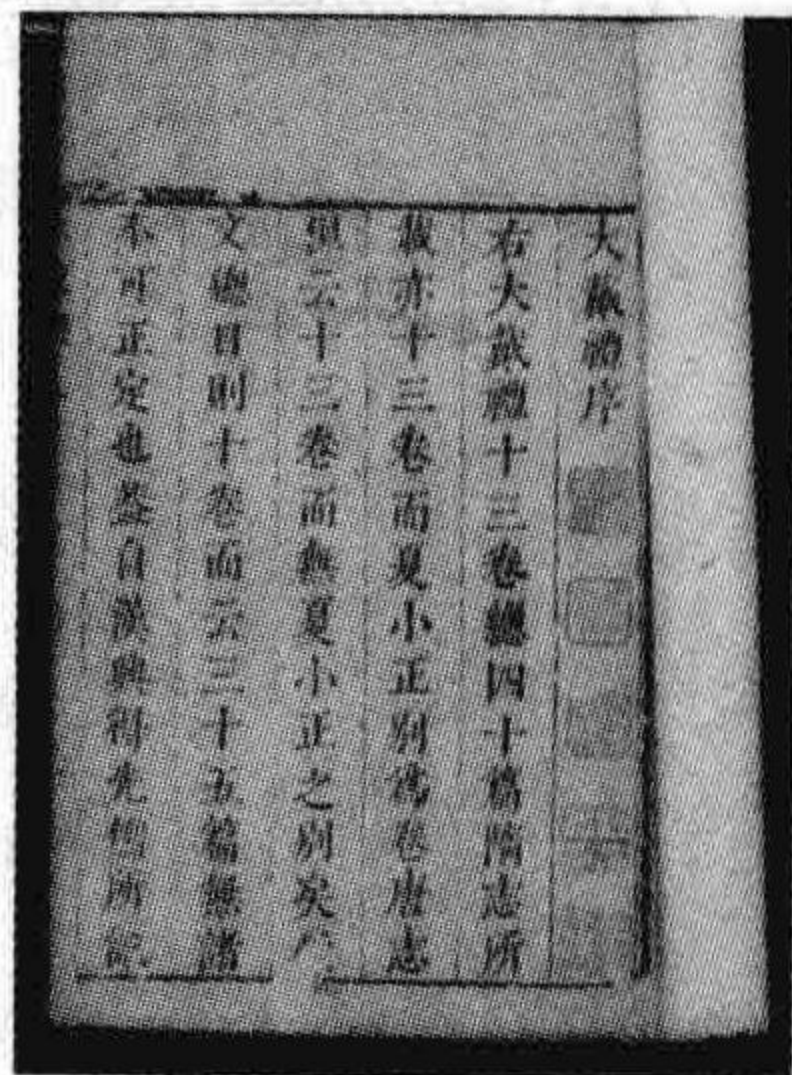 大戴禮序
右大戴禮十三卷總四十篇隋志所
載亦十三卷而夏小正別為卷唐志
但云十三卷而無夏小正之別矣
文總目則十卷而云三十五篇無諸
本可正定也蓋自漢興得先儒所記